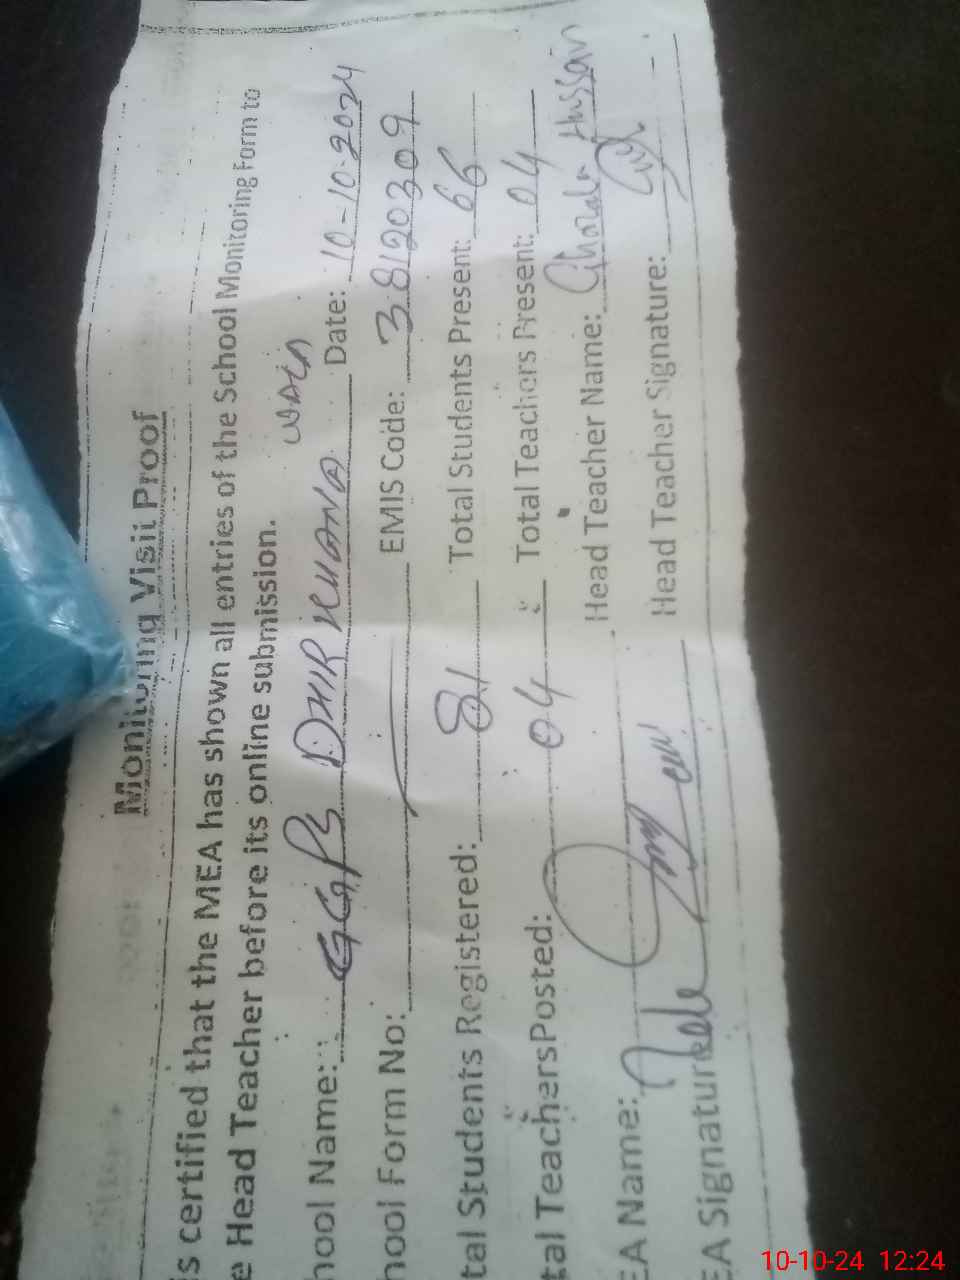 Monitoring Visit Proof
s certified that the MEA has shown all entries of the School Monitoring Form to
e Head Teacher before its online submission.
hool Name: GGPS DHIR UMANA WALA Date: 10-10-2024
hool Form No: EMIS Code: 38120309
tal Students Registered: 81 Total Students Present: 66
tal Teachers Posted: 04 Total Teachers Present: 04
EA Name: Head Teacher Name: Ghazala Hussain
EA Signature Head Teacher Signature:
10-10-24 12:24